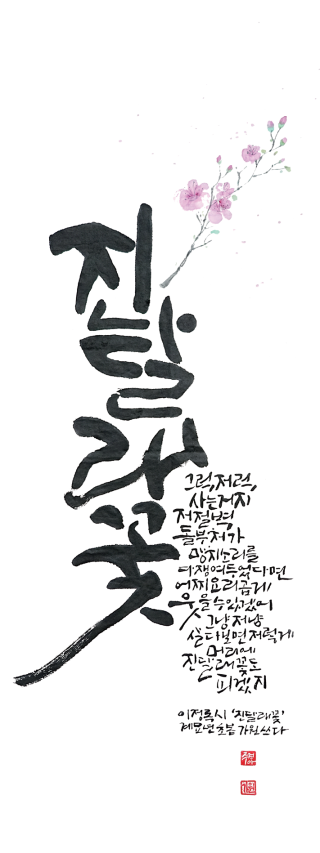 진달래꽃
그럭, 저럭,
사는거지
저절벽
돌부처가
망치소리를
다쟁여두었다면
어찌요리곱게
웃을수있겠어
그냥저냥
살다보면저렇게
머리에
진달래꽃도
피겠지
이정록시 '진달래꽃'
계묘년초봄 가원쓰다